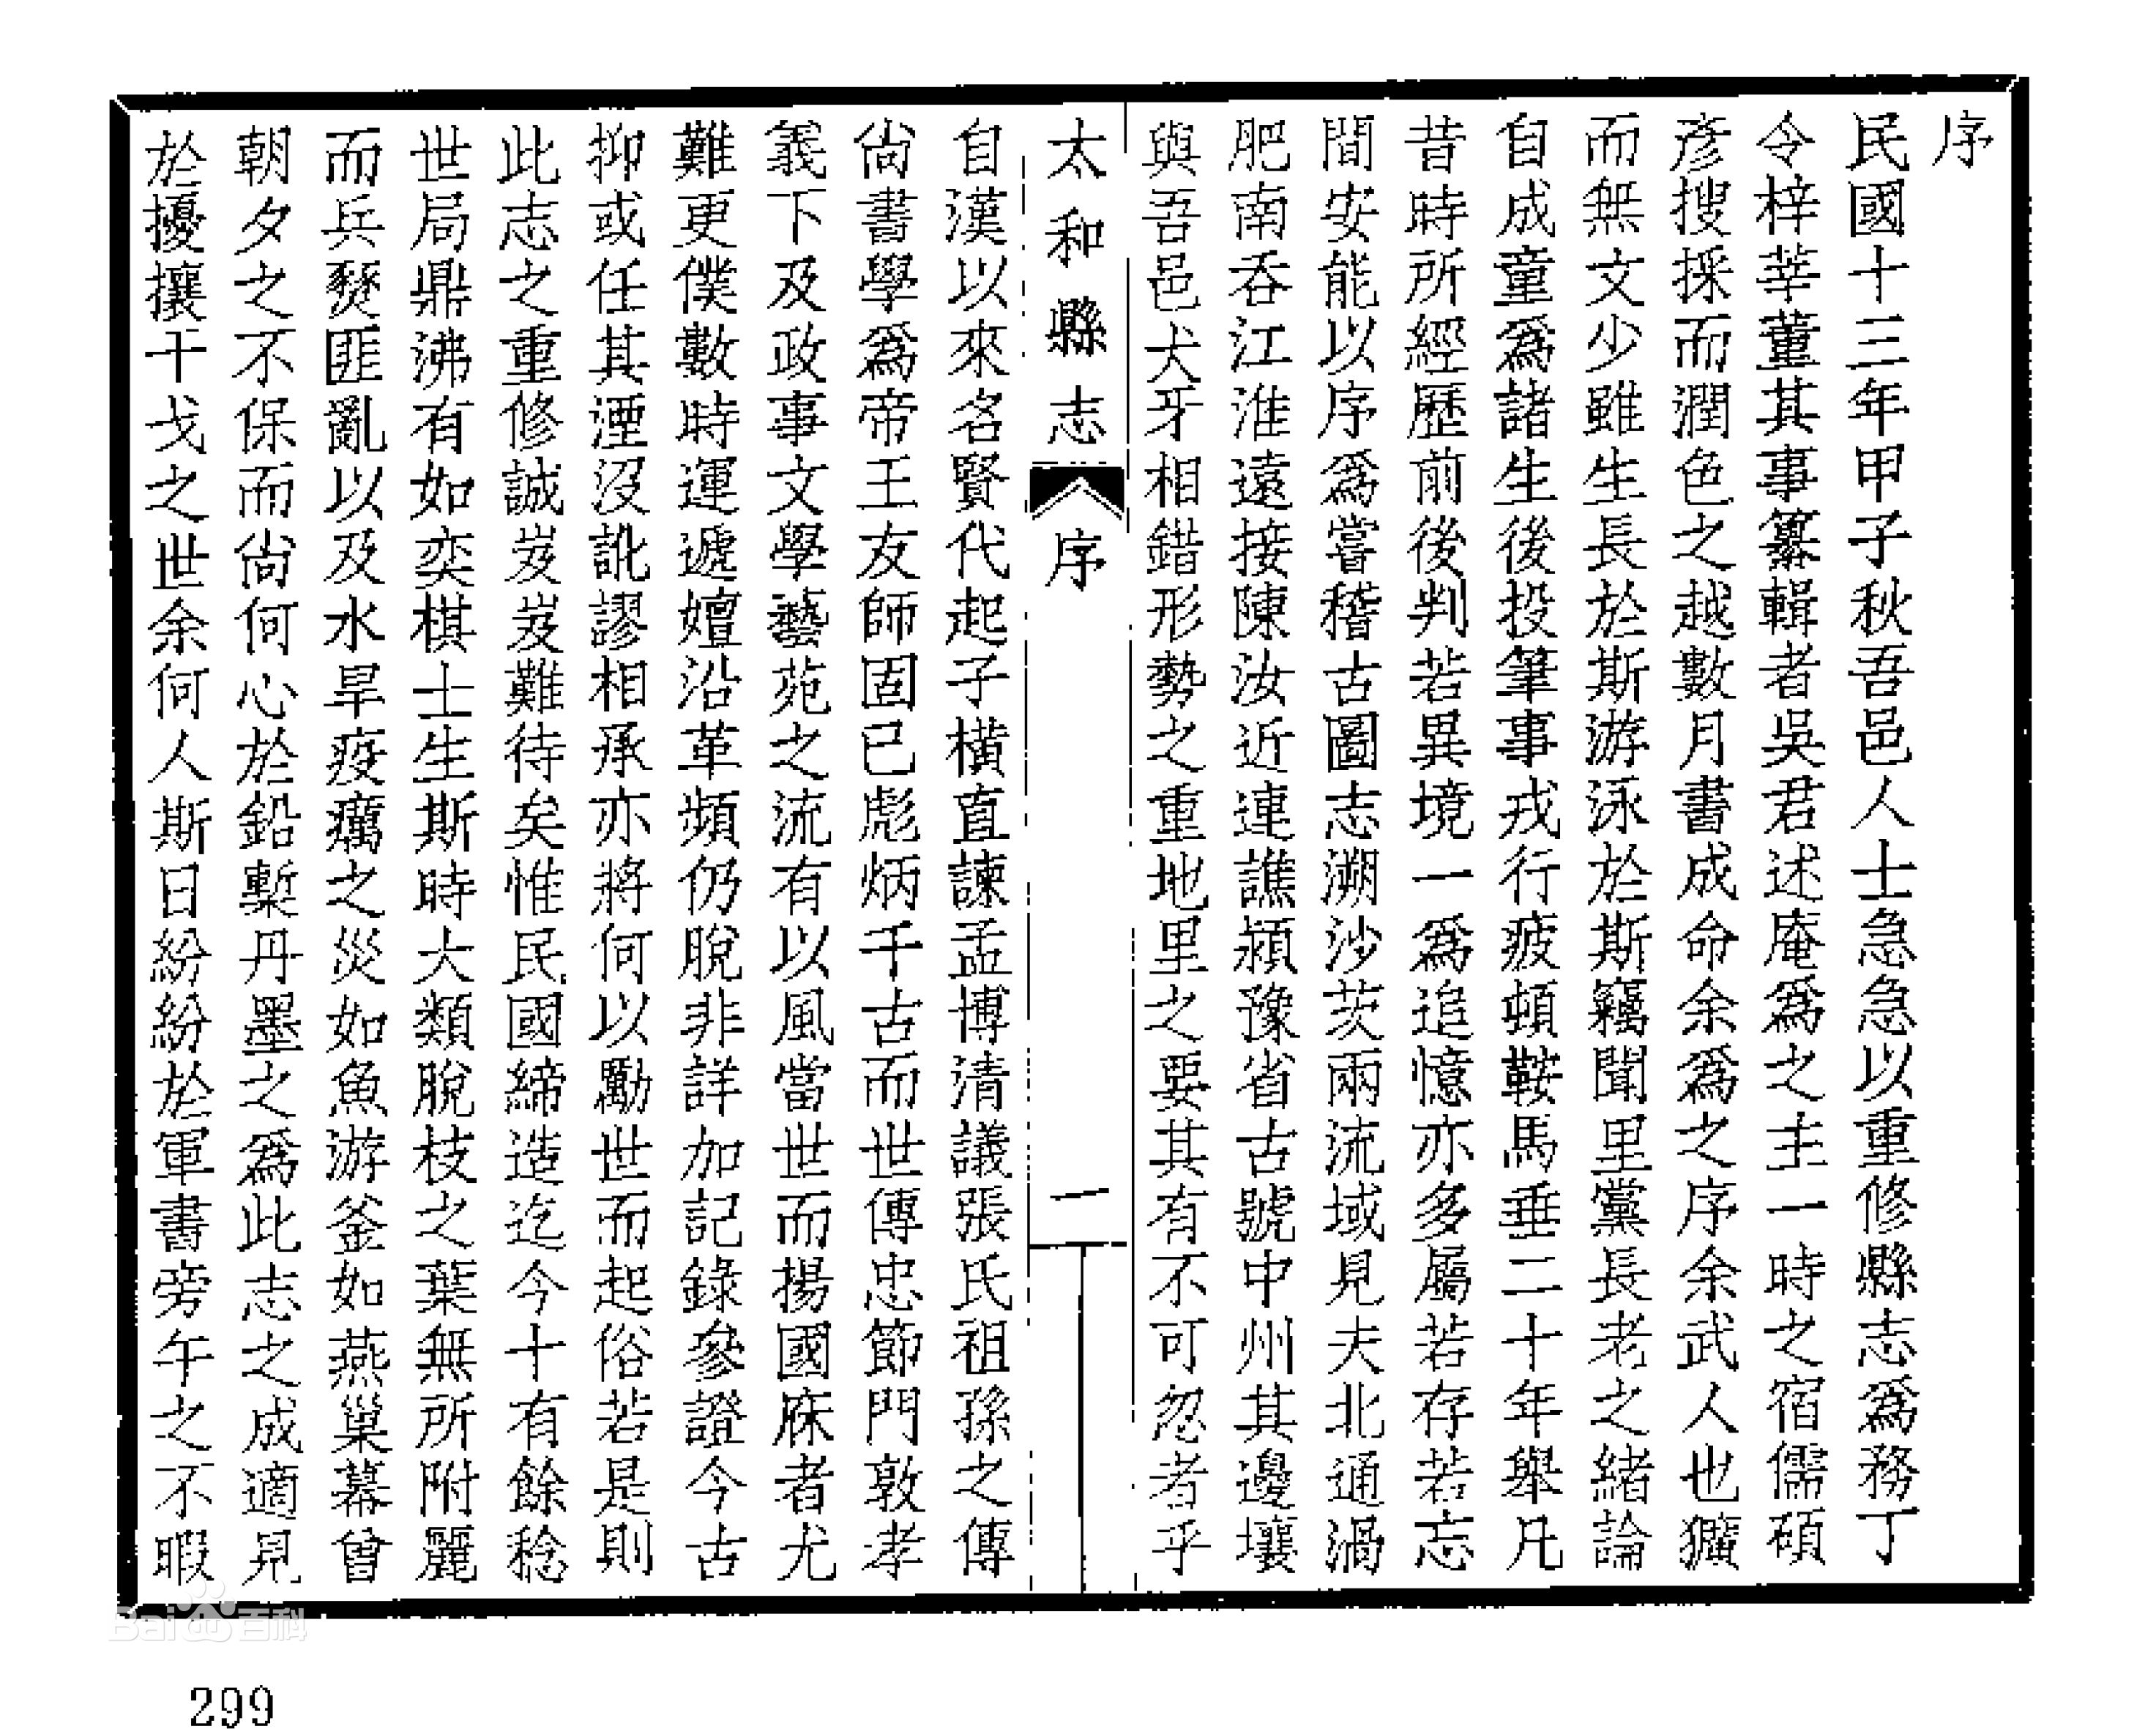 序
民國十三年甲子秋吾邑人士急急以重修縣志爲務丁
令梓莘董其事纂輯者吳君述庵爲之主一時之宿儒碩
彥搜採而潤色之越數月書成命余爲之序余武人也獷
而無文少雖生長於斯游泳於斯竊聞里黨長老之緒論
自成童爲諸生後投筆事戎行疲頓鞍馬垂二十年舉凡
昔時所經歷前後判若異境一爲追憶亦多屬若存若忘
間安能以序爲嘗稽古圖志溯沙茨兩流域見夫北通渦
肥南吞江淮遠接陳汝近連譙潁豫省古號中州其邊壤
與吾邑犬牙相錯形勢之重地里之要其有不可忽者乎
太和縣志 序 一
自漢以來名賢代起子橫直諫孟博清議張氏祖孫之傳
尙書學爲帝王友師固已彪炳千古而世傳忠節門敦孝
義下及政事文學藝苑之流有以風當世而揚國庥者尤
難更僕數時運遞嬗沿革頻仍脫非詳加記錄參證今古
抑或任其湮沒訛謬相承亦將何以勵世而起俗若是則
此志之重修誠岌岌難待矣惟民國締造迄今十有餘稔
世局鼎沸有如奕棋士生斯時大類脫枝之葉無所附麗
而兵燹匪亂以及水旱疫癘之災如魚游釜如燕巢幕曾
朝夕之不保而尙何心於鉛槧丹墨之爲此志之成適見
於擾攘干戈之世余何人斯日紛紛於軍書旁午之不暇
Bai 百科
299